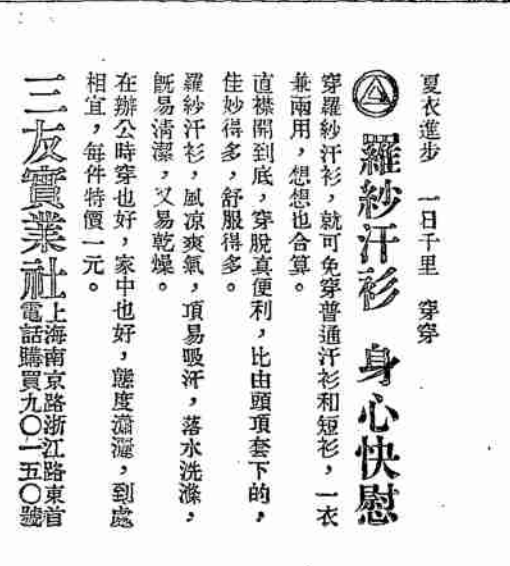 夏衣進步　一日千里　穿穿
羅紗汗衫　身心快慰
穿羅紗汗衫，就可免穿普通汗衫和短衫，一衣
兼兩用，想想也合算。
直襟開到底，穿脫真便利，比由頭頂套下的，
佳妙得多，舒服得多。
羅紗汗衫，風凉爽氣，頂易吸汗，落水洗滌，
旣易清潔，又易乾燥。
在辦公時穿也好，家中也好，態度瀟灑，到處
相宜，每件特價一元。
三友實業社
上海南京路浙江路東首
電話購買九〇一五〇號